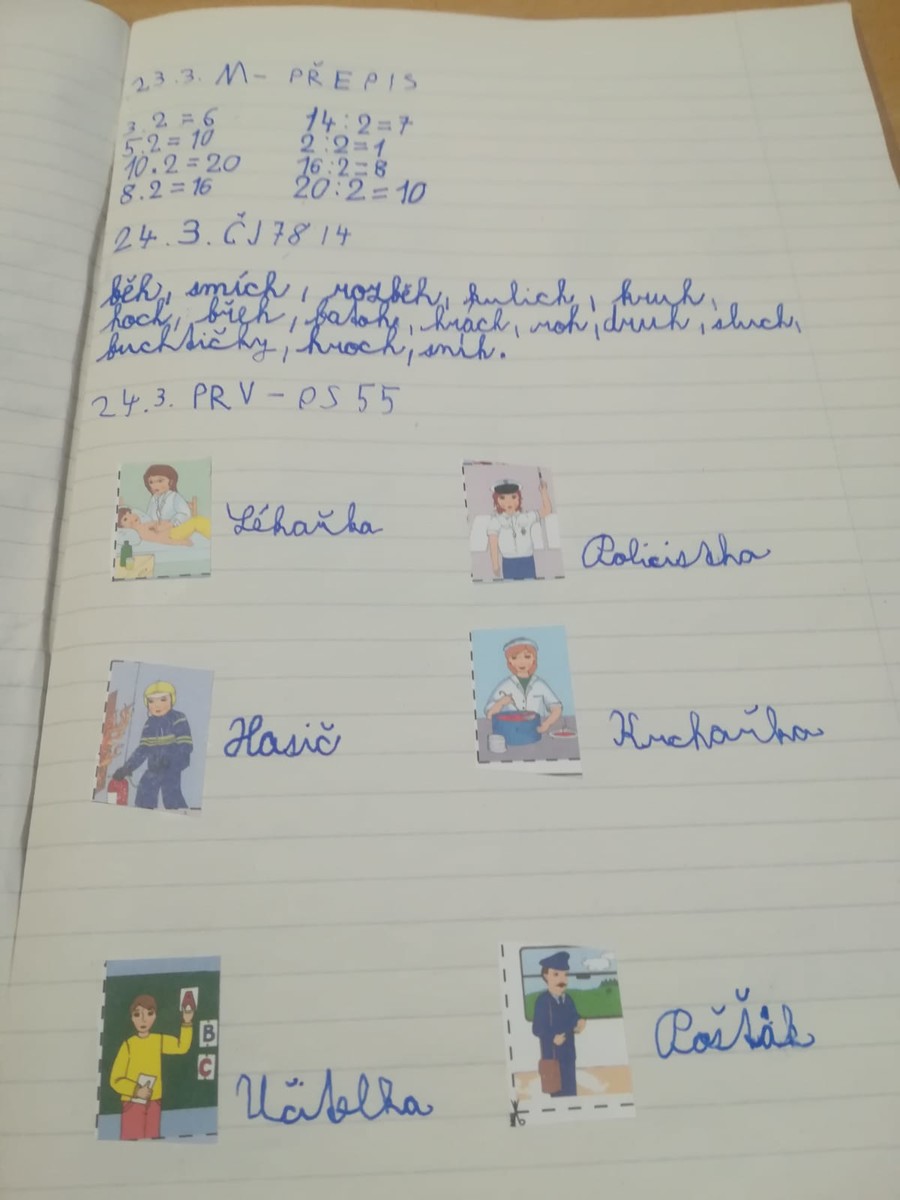 23.3. M - PŘEPIS
3.2 = 6 14:2=7
5.2 = 10 2:2=1
10.2 = 20 16:2=8
8.2 = 16 20:2=10
24.3. ČJ 78 14
běh, smích, rozběh, kulich, kruh,
hoch, břeh, batoh, hrách, roh, druh, sluch,
buchtičky, hroch, sníh.
24.3. PRV - PS 55
Lékařka
Policistka
Hasič
Kuchařka
A
B
C
Učitelka
Pošťák